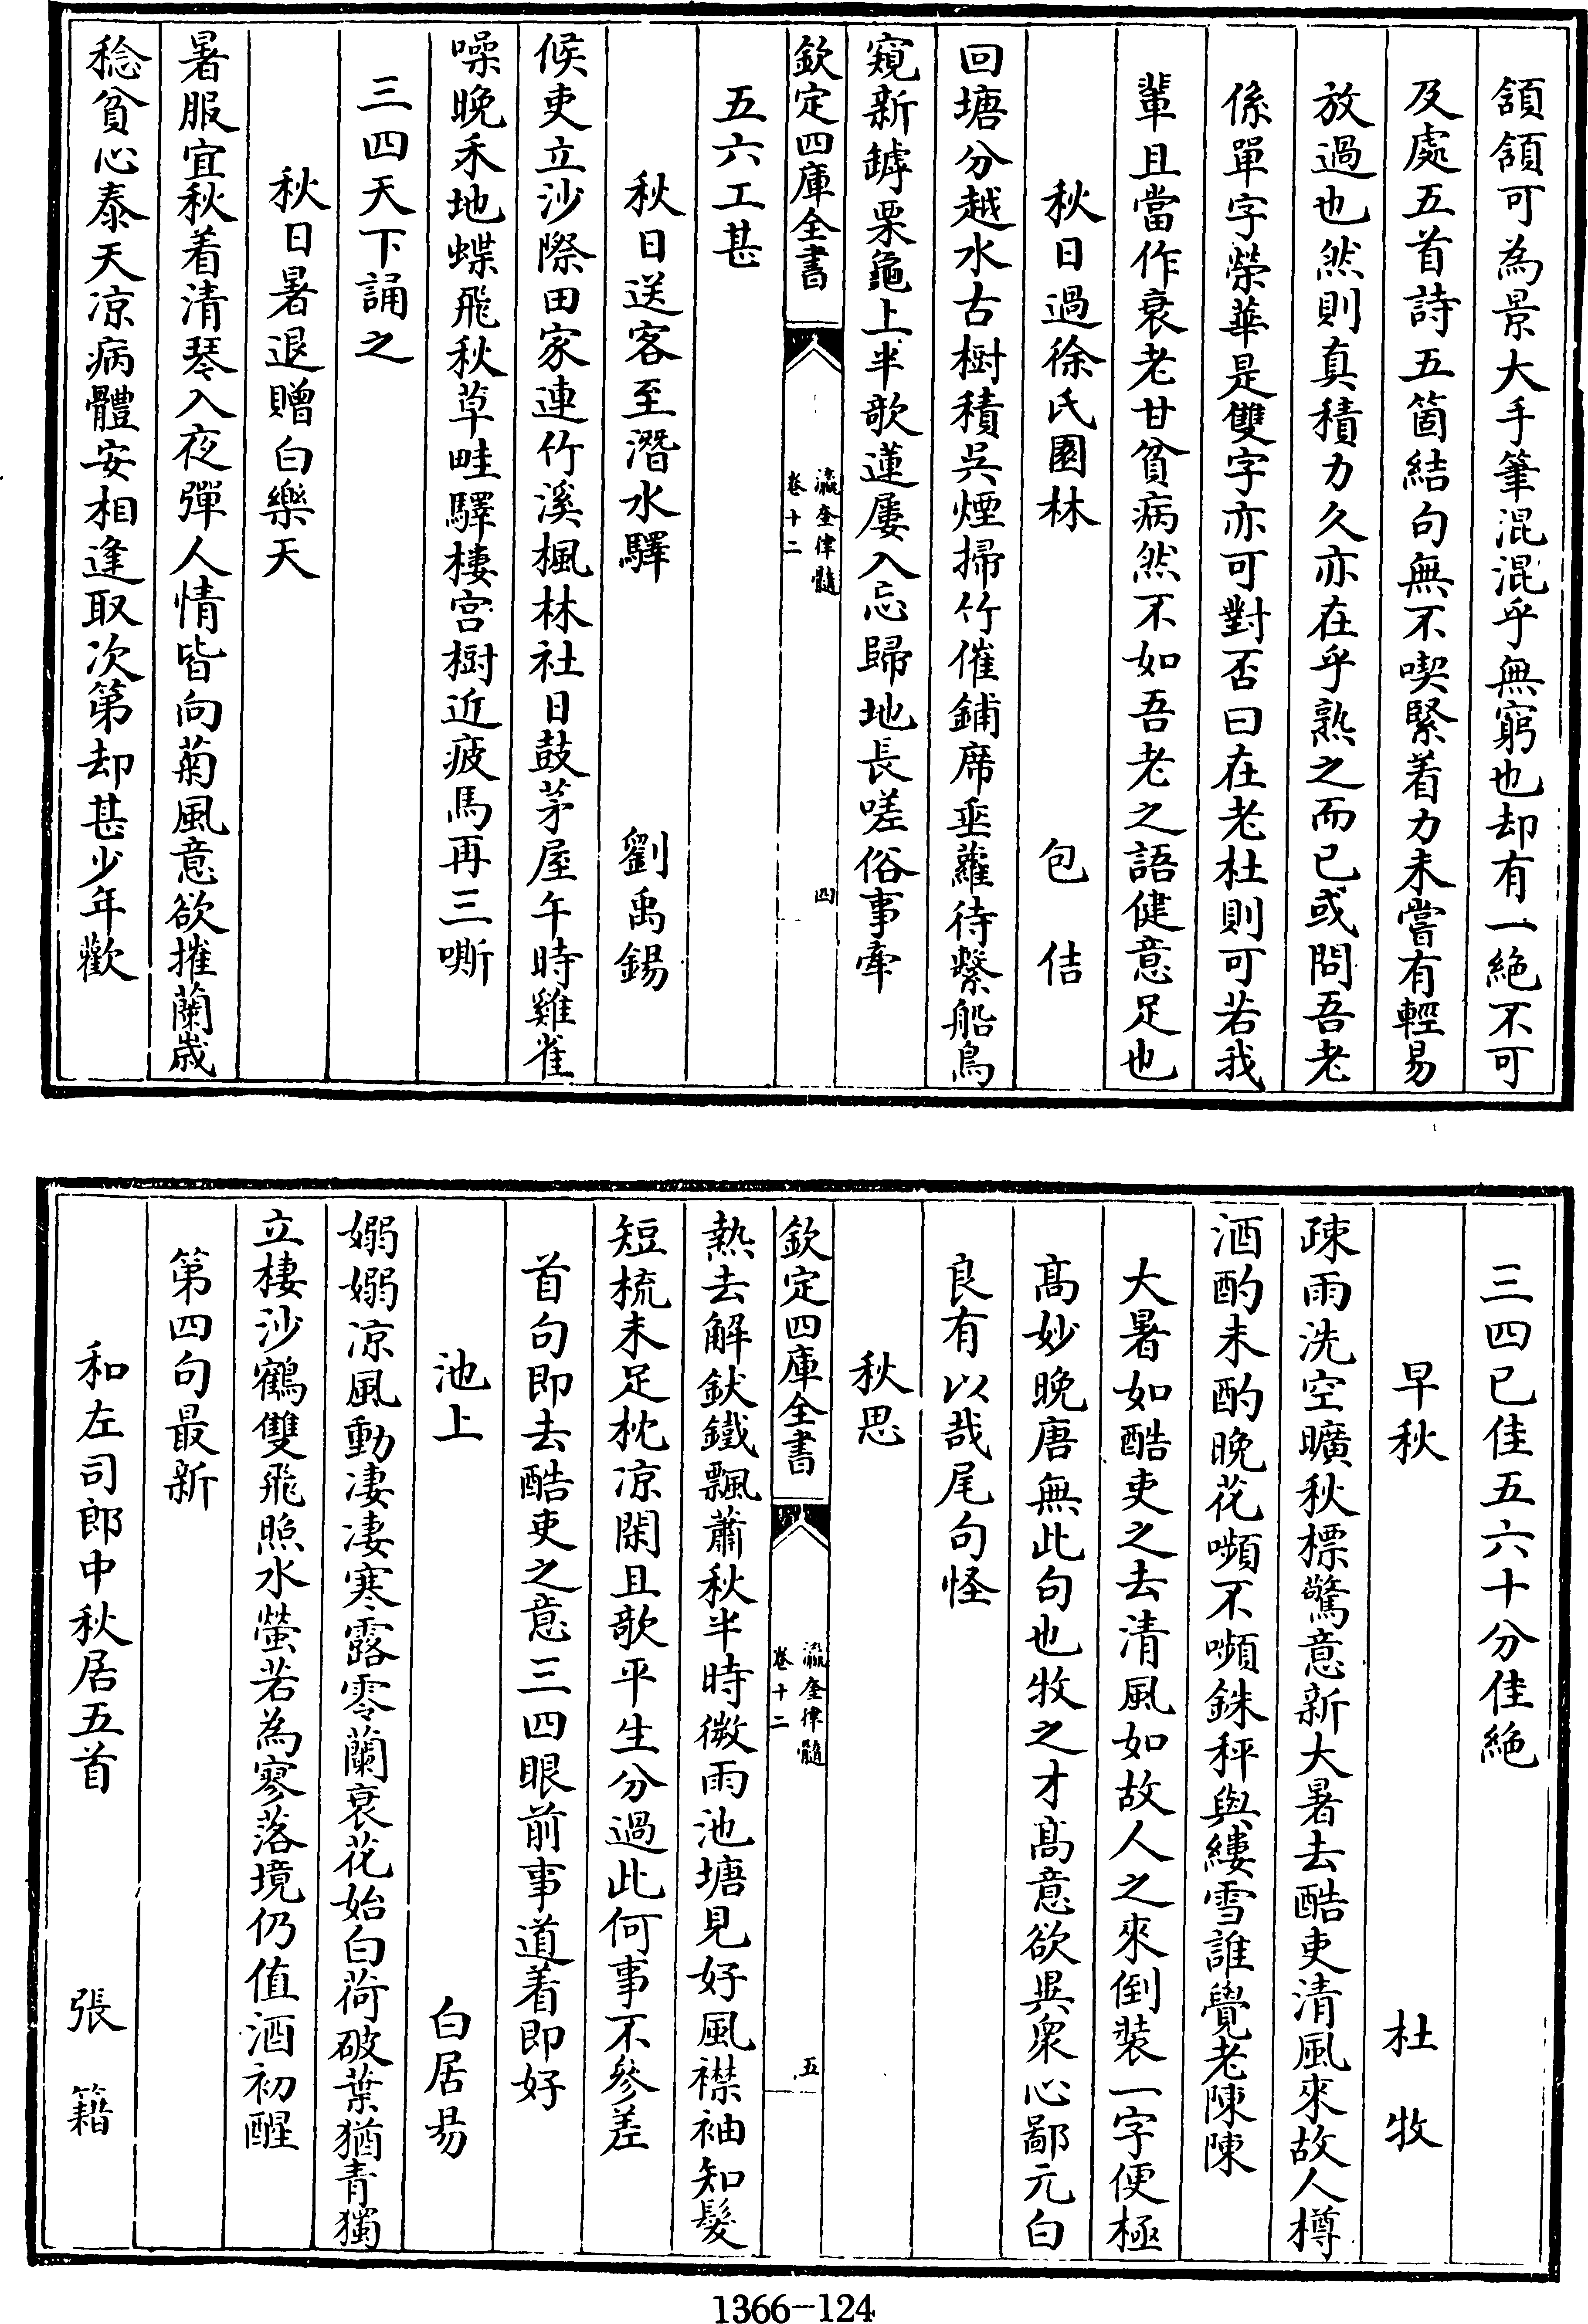 頷頷可為景大手筆混混乎無窮也却有一絶不可
及處五首詩五箇結句無不喫緊着力未嘗有輕易
放過也然則真積力久亦在乎熟之而已或問吾老
係單字榮華是雙字亦可對否曰在老杜則可若我
輩且當作衰老甘貧病然不如吾老之語健意足也
秋日過徐氏園林 包佶
回塘分越水古樹積吳煙掃竹催鋪席垂蘿待繫船鳥
窺新罅栗龜上半欹蓮屢入忘歸地長嗟俗事牽
欽定四庫全書 瀛奎律髓 卷十二 四
五六工甚
秋日送客至潛水驛 劉禹錫
候吏立沙際田家連竹溪楓林社日鼓茅屋午時雞雀
噪晚禾地蝶飛秋草畦驛樓宮樹近疲馬再三嘶
三四天下誦之
秋日暑退贈白樂天
暑服宜秋着清琴入夜彈人情皆向菊風意欲摧蘭歲
稔貧心泰天凉病體安相逢取次第却甚少年歡
三四已佳五六十分佳絶
早秋 杜牧
疎雨洗空曠秋標驚意新大暑去酷吏清風來故人樽
酒酌未酌晚花嚬不嚬銖秤與縷雪誰覺老陳陳
大暑如酷吏之去清風如故人之來倒裝一字便極
髙妙晚唐無此句也牧之才髙意欲異衆心鄙元白
良有以哉尾句怪
秋思
熱去解鈇鐵飄蕭秋半時微雨池塘見好風襟袖知髮
短梳未足枕凉閑且欹平生分過此何事不參差
首句即去酷吏之意三四眼前事道着即好
欽定四庫全書 瀛奎律髓 卷十二 五
池上 白居易
嫋嫋凉風動凄凄寒露零蘭衰花始白荷破葉猶青獨
立棲沙鶴雙飛照水螢若為寥落境仍值酒初醒
第四句最新
和左司郎中秋居五首 張籍
1366-124